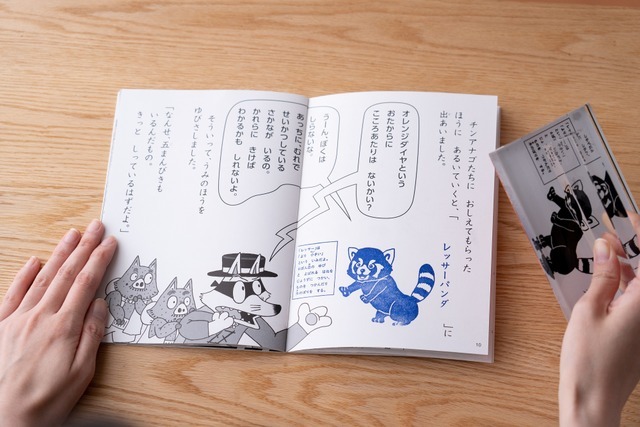 チンアナゴたちに おしえてもらった
ほうに あるいていくと、「レッサーパンダ」に
出あいました。
オレンジダイヤという
おたからに
こころあたりは ないかい?
うーん、ぼくは
しらないな。
あっちに、むれで
せいかつしている
さかなが いるの。
かれらに きけば
わかるかも しれないよ。
そういって、うみのほうを
ゆびさしました。
「なんせ、五まんびきも
いるんだもの。
きっと しっているはずだよ。」
10